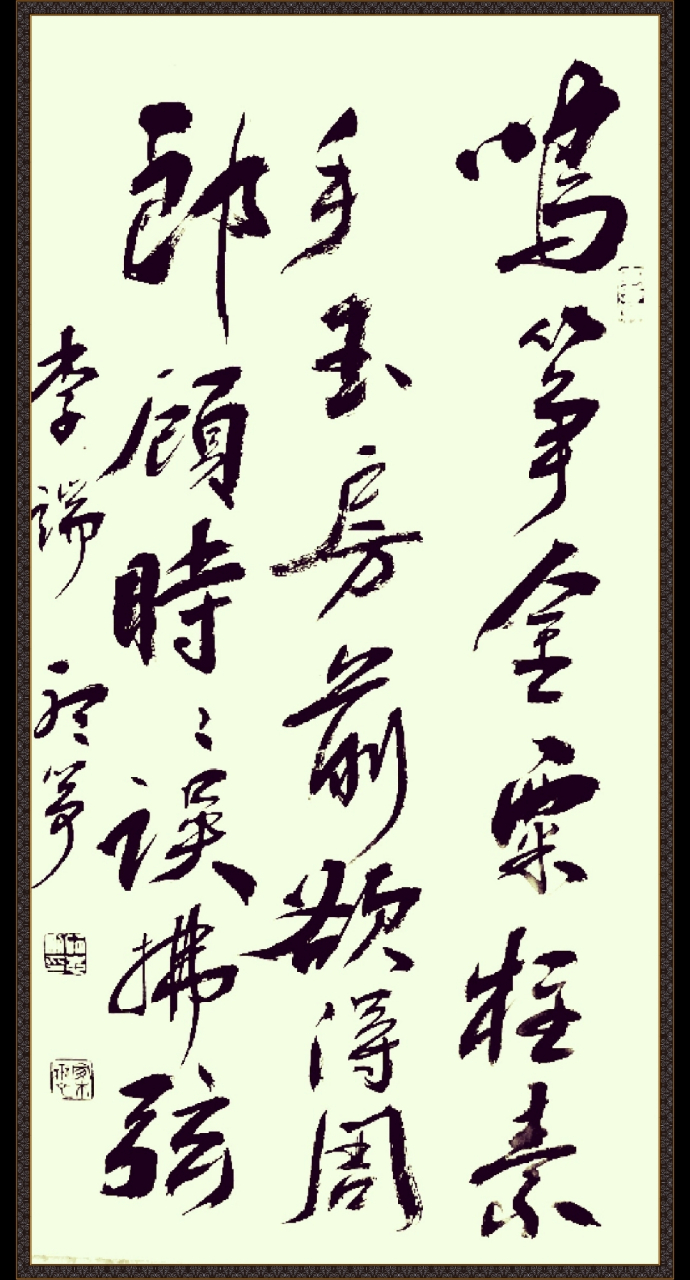 鳴箏金粟柱素
手玉房前欲得周
郎顧時〻誤拂弦
李端 听箏